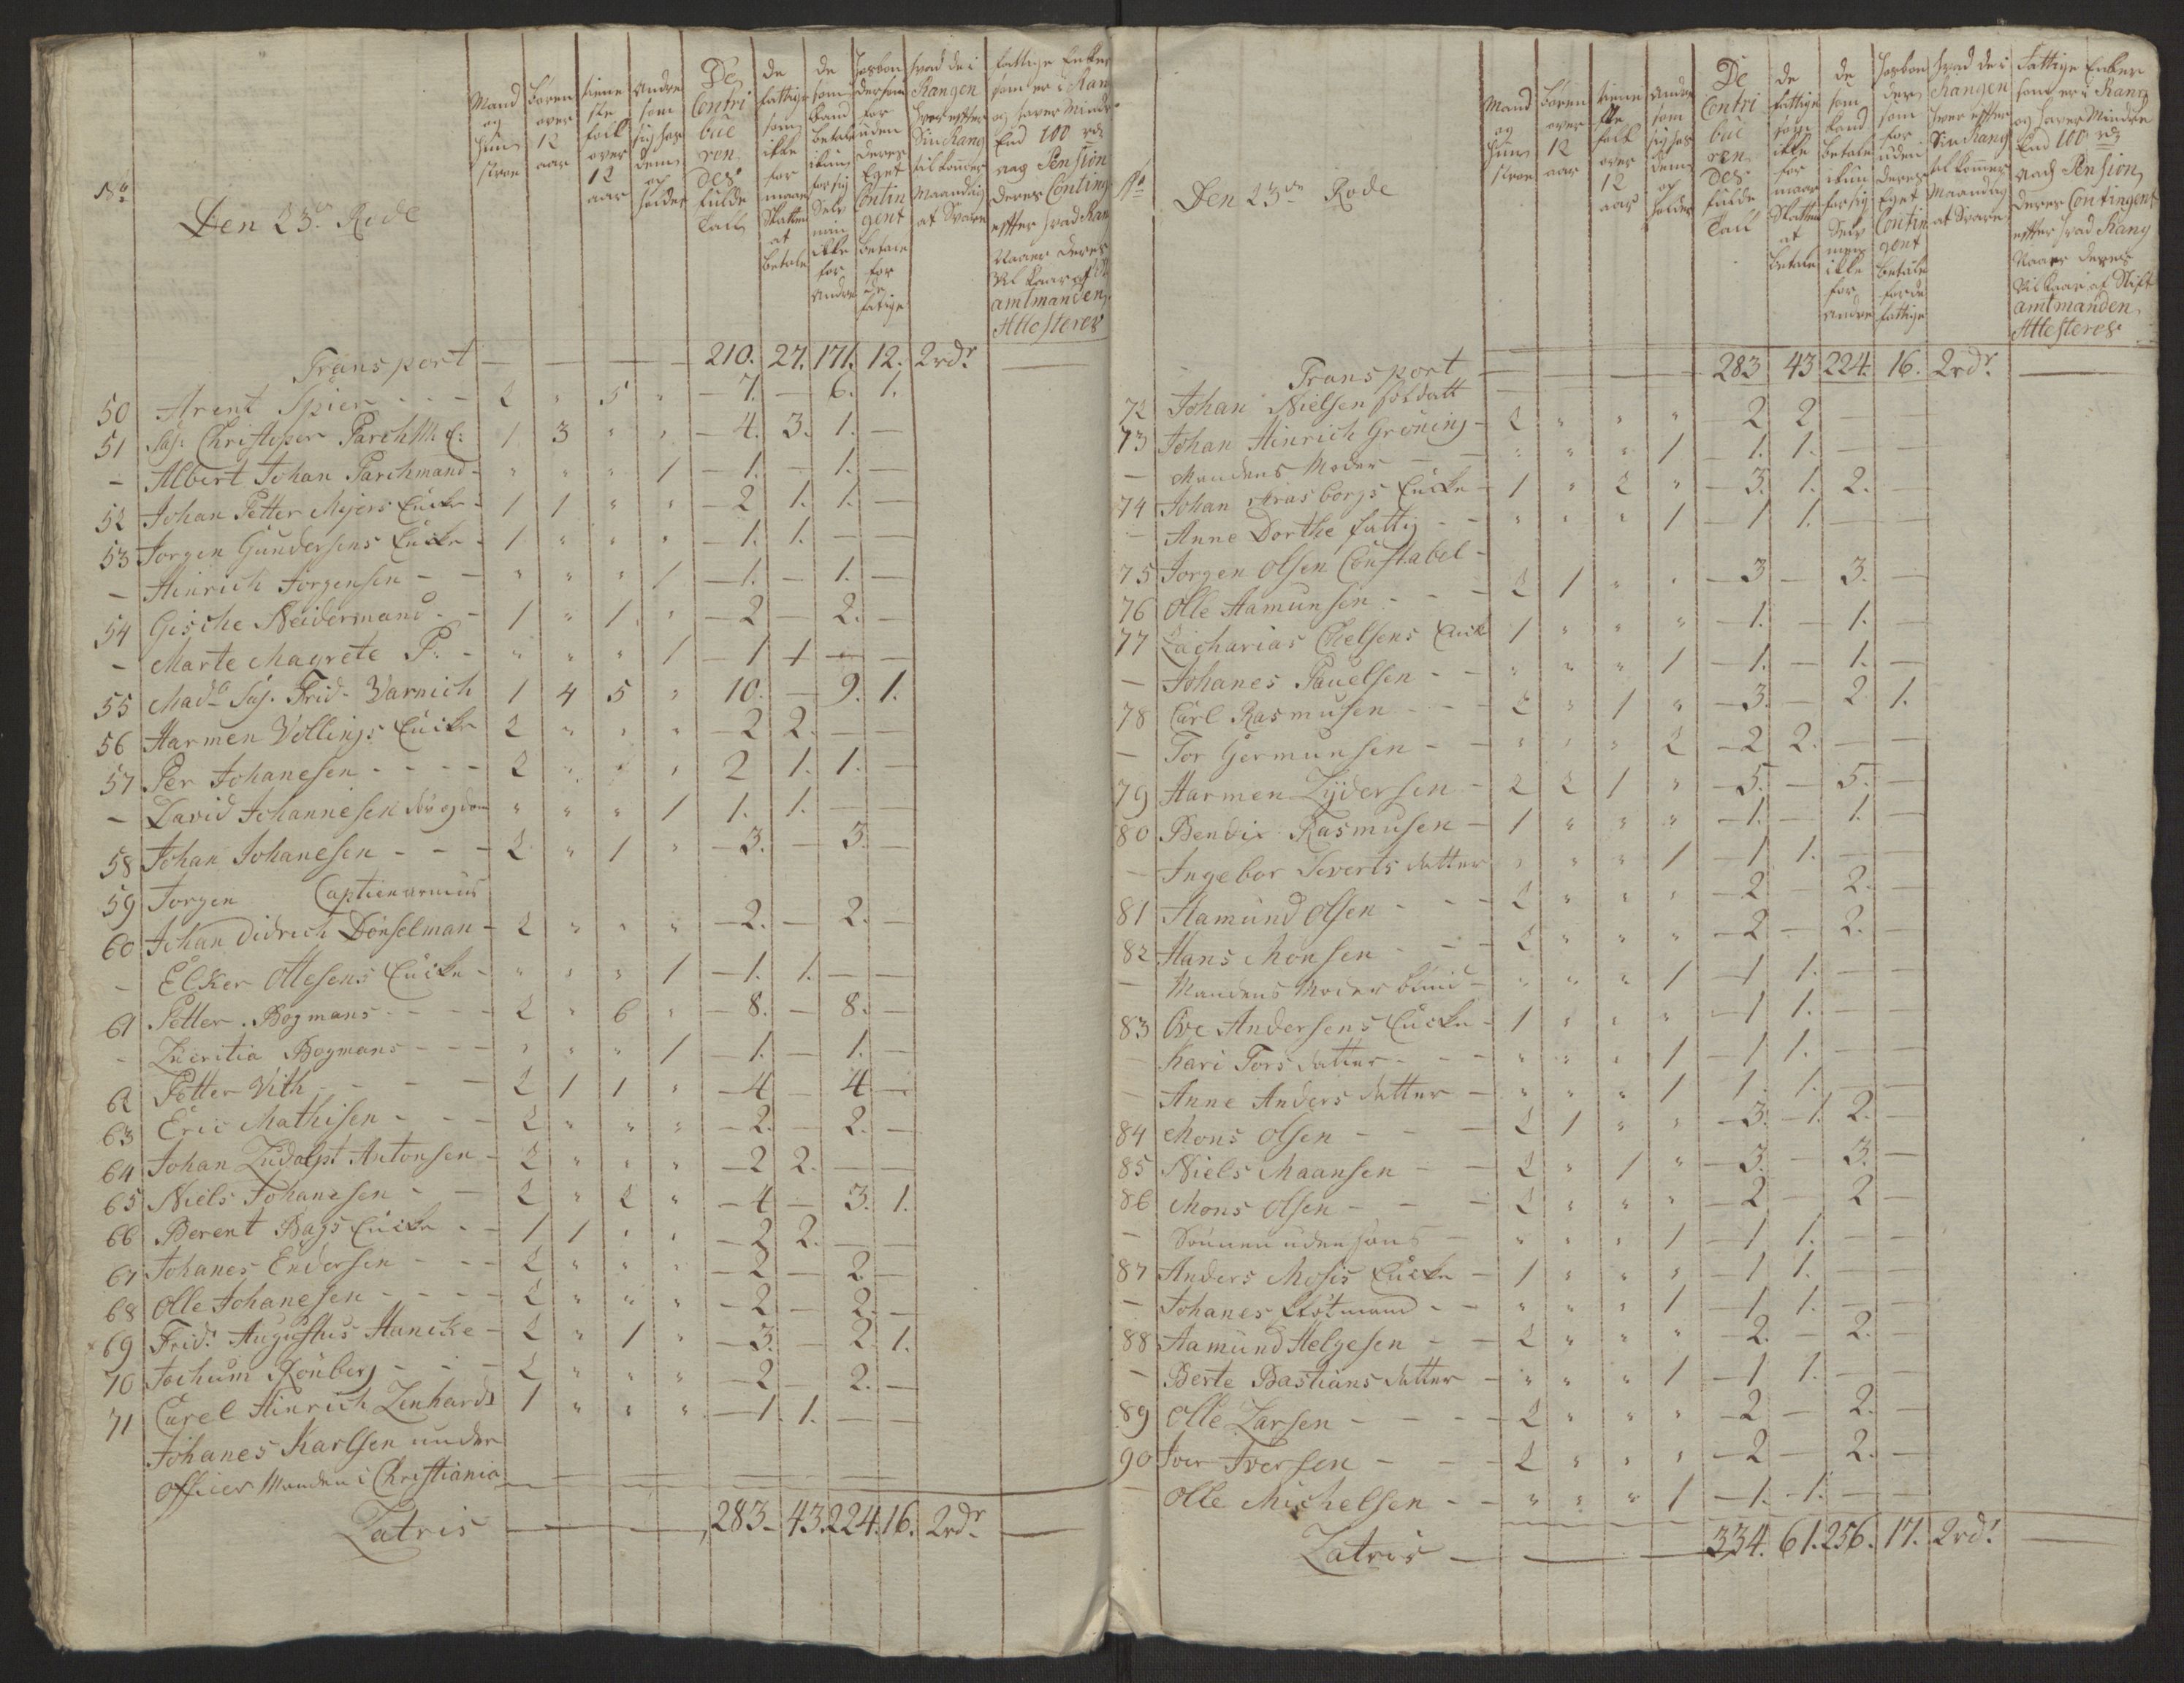 No
Den 23de Rode
Mand og Hun stroe
børen over 12 aar
tiene ste folk over 12 aar
Andre som sig hos dem op holder
De Contri bue ren des fulde Tall
de fattige som ikke for maar Skatten at betale
de som kand betale ikun for sig Selv men ikke for Andre
Hosbon der som for uden deres Eget Contin gent betale for de fatige
hvad de i Rangen hver efter Sin Rang til kommer Maandlig at Svare
fattige Enker som er i Rang og haver Mindre End 100 rdr aag Pension deres Conting efter hvad Rang Naaer deres Vil kaar af Stift amtmanden Attesteres
Transport — — — — 210. 27. 171. 12. 2rdr —
50 Arent Spier - - - 2 " 5 " — 7. — 6. 1.
51 Sal: Christoper ParchM: E: 1 3 " " — 4. 3. 1. —
- Albert Johan Parchmand - " " " 1 — 1. — 1. —
52 Johan Petter Mejers Encke - 1 1 " " — 2 1. 1. —
53 Jorgen Gundersens Encke - 1 " " " — 1. 1. — —
- Hinrich Jorgensen - - " " " 1 — 1. — 1. —
54 Gische Neidermand - - 1 " 1. " — 2 — 2. —
- Marte Magrete P: - " " " 1 — 1 1 — —
55 Mad Sal. Frid. Varnich 1 4 5 " 10. — 9. 1.
56 Harmen Vellings Encke 2 " " " — 2 2. — —
57 Per Johanesen - - - - 2 " " " 2 1. 1. —
- David Johannesen " " " 1 1. 1. —
58 Johan Johanesen - - - 2 " 1 " — 3. — 3. —
59 Jorgen Captienarmus
60 Johan Didrich Dönselman - 2 " " " — 2. — 2. —
- Elker Ottesens Encke - " " " 1 — 1. 1. — —
61 Petter Bogmans - - - - 2 " 6 " — 8. — 8. —
- Lucritia Bogmans - - - " " " 1 — 1. — 1. —
62 Petter Vith - - - 2 1 1 " — 4 — 4 —
63 Eric Mathisen - - - 2 " " " — 2. — 2. —
64 Johan Ludolpt Antonsen - 2 " " " — 2 2. — —
65 Niels Johanesen - - 2 " 2 " — 4 — 3. 1.
66 Berent Bags Encke - - 1 1 " " — 2 2. — —
67 Johanes Endersen - - - 2 " " " — 2 — 2 —
68 Olle Johanesen - - - - 2 " " " — 2 — 2. —
69 Frid: Augustus Hancke - 2 " 1 " — 3. — 2 1.
70 Jochum Rönberg - - - 2 " " " — 2 — 2. —
71 Carel Hinrich Lenhards 1 " " " — 1. 1. — —
Johanes Karlsen under
officer Manden i Christiania
Latris — — — — 283. 43. 224. 16. 2rdr —
No
Den 23de Rode
Mand og Hun stroe
børen over 12 aar
tiene ste folk over 12 aar
Andre som sig hos dem op holder
De Contri bue ren des fulde Tall
de fattige som ikke for maar Skatten at betale
de som kand betale ikun for sig Selv men ikke for andre
Hosbon der som for uden deres Eget Contin gent betale for de fattige
hvad de i Rangen hver efter Sin Rang til kommer Maandlig at Svare
Fattige Enker som er i Rang og haver Mindre End 100 rdr aag Pension deres Contingent efter hvad Rang Naaer deres Vilkaar af Stift amtmanden Attesteres
Transport — — — — 283 43 224. 16. 2rdr. —
72 Johan Nielsen soldatt
73 Johan Hinrich Gröning - 2 " " " — 2 2 — —
- Mandens Moder - - " " " 1 — 1. 1. — —
74 Johan Encke - 1 " 2 " — 3. 1. 2. —
- Anne Dorthe fattig - - " " " 1 — 1 1. — —
75 Jorgen Olsen Constabel -
76 Olle Aamunsen - - - 2 1 " " — 3 — 3. —
77 Zacharias Chelsens Enck 1 " " " — 1. — 1. —
- Johanes Pauelsen - - " " " 1 — 1. — 1. —
78 Carl Rasmusen - - - 2 " 1 " — 3. — 2 1.
- Tor Germunsen - - " " " 2 — 2 2. — —
79 Harmen Lyjdersen - 2 2 1 " — 5. — 5. —
80 Bendix Rasmusen - 1 " " " — 1. — 1. —
- Ingebor Severts datter " " " 1 — 1 1. — —
81 Aamund Olsen - - - 2 " " " — 2 — 2. —
82 Hans Monsen - - - 2 " " " — 2 — 2. —
- Mandens Moder blind - " " " 1 — 1 1. — —
83 Ove Andersens Encke - 1 " " " — 1 1. — —
- Kari Tors datter - - - " " " 1 — 1 1. — —
- Anne Anders datter - " " " 1 1 1. — —
84 Mons Olsen - - - 2 1 " " — 3. — 1. 2. —
85 Niels Maansen - - 2 " 1 " — 3. — 3. —
86 Mons Olsen - - - 2 " " " — 2 — 2 —
- Sönnen uden huus - " " " 1 — 1 1. — —
87 Anders Mosis Encke - 1 " " " — 1 1. — —
- Johanes Slotmand - - " " " 1 — 1 1. — —
88 Aamund Helgesen - - 2 " " " — 2. — 2. —
- Berte Bastians datter - " " " 1 — 1 1. — —
89 Olle Larsen - - - - 2 " " " — 2 — 2. —
90 Iver Iversen - - - 2 " " " — 2 — 2. —
- Olle Michelsen - - " " " 1 — 1. - 1. — —
Latris — — — 334. 61. 256. 17. 2rdr. —